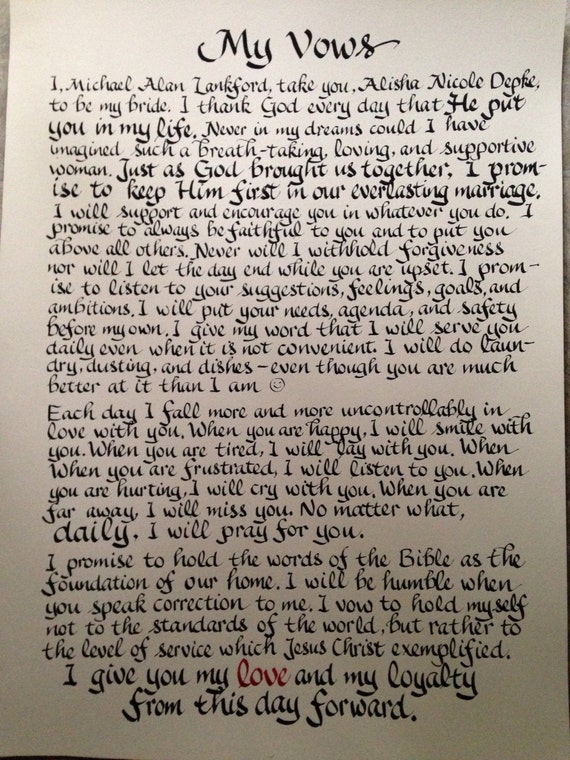 My Vows
I, Michael Alan Lankford, take you, Alisha Nicole Depke,
to be my bride. I thank God every day that He put
you in my life. Never in my dreams could I have
imagined such a breath-taking, loving, and supportive
woman. Just as God brought us together, I prom-
ise to keep Him first in our everlasting marriage.
I will support and encourage you in whatever you do. I
promise to always be faithful to you and to put you
above all others. Never will I withhold forgiveness
nor will I let the day end while you are upset. I prom-
ise to listen to your suggestions, feelings, goals, and
ambitions. I will put your needs, agenda, and safety
before my own. I give my word that I will serve you
daily even when it is not convenient. I will do laun-
dry, dusting, and dishes – even though you are much
better at it than I am ☺
Each day I fall more and more uncontrollably in
love with you. When you are happy, I will smile with
you. When you are tired, I will lay with you. When
When you are frustrated, I will listen to you. When
you are hurting, I will cry with you. When you are
far away, I will miss you. No matter what,
daily, I will pray for you.
I promise to hold the words of the Bible as the
foundation of our home. I will be humble when
you speak correction to me. I vow to hold myself
not to the standards of the world, but rather to
the level of service which Jesus Christ exemplified.
I give you my love and my loyalty
from this day forward.